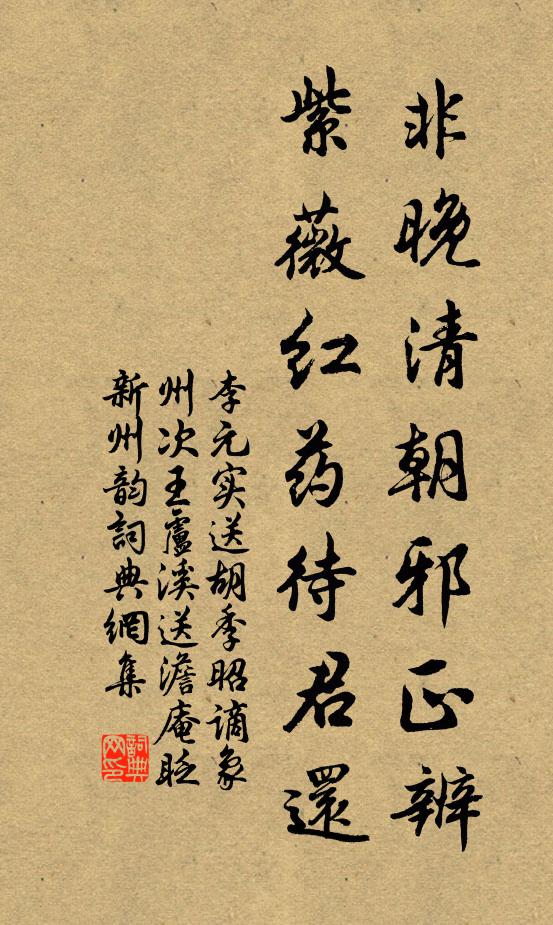 非晚清朝邪正辨
紫薇红药待君還
李元实送胡季昭谪象
州次王盧溪送澹庵眨
新州韵詞典網集
詞典网印